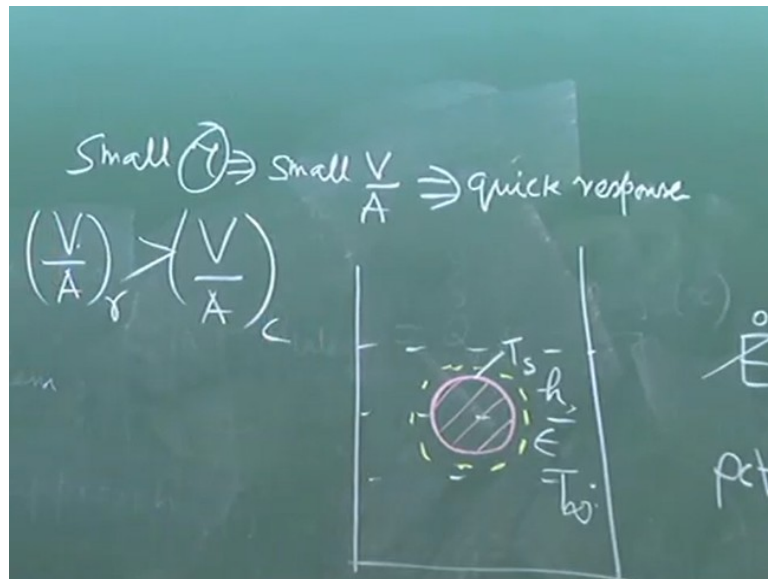 Small τ ⇒ small V/A ⇒ quick response
(V/A)r > (V/A)c
Ts
h,
ϵ
T∞
ρc